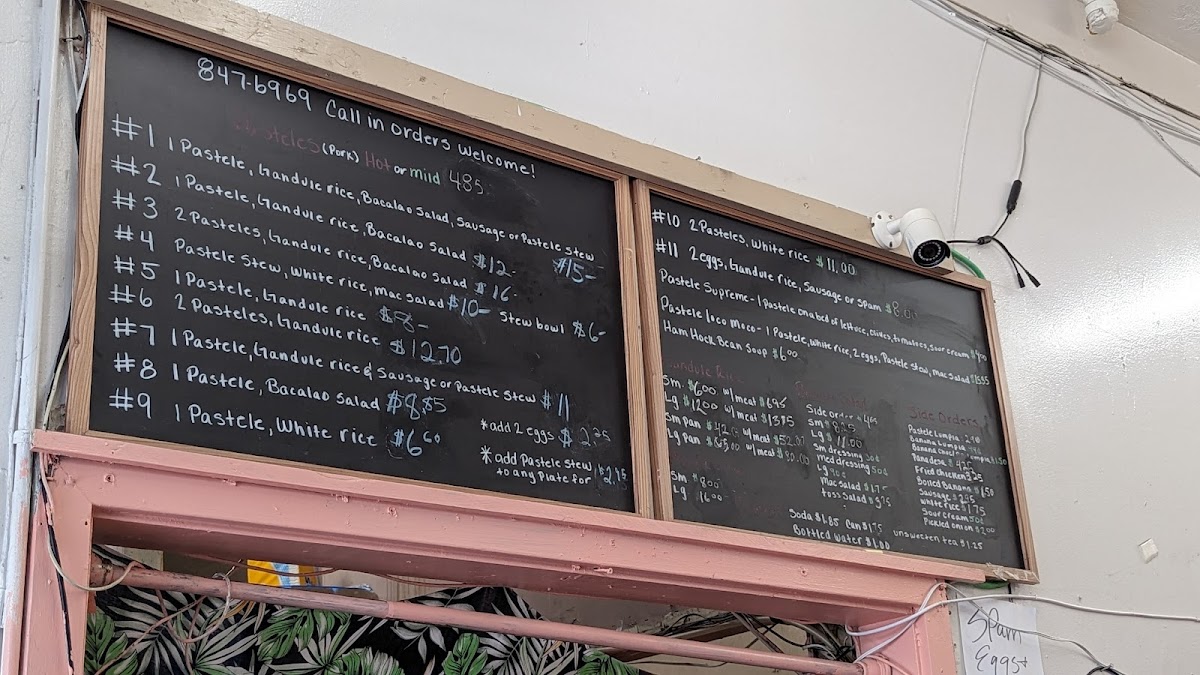 847-6969 Call in orders welcome!
Pasteles (Pork) Hot or mild 485.
#1 1 Pastele, Gandule rice, Bacalao Salad, Sausage or Pastele stew $15-
#2 1 Pastele, Gandule rice, Bacalao Salad $12-
#3 2 Pasteles, Gandule rice, Bacalao Salad $16-
#4 Pastele Stew, White rice, Mac Salad $10- Stew bowl $6-
#5 1 Pastele, Gandule rice $8-
#6 2 Pasteles, Gandule rice $12.70
#7 1 Pastele, Gandule rice & Sausage or Pastele Stew $11
#8 1 Pastele, Bacalao Salad $8.85
#9 1 Pastele, White rice $6.60
*add 2 eggs $2.25
*add Pastele stew
to any Plate for $2.95
#10 2 Pasteles, White rice $11.00
#11 2 eggs, Gandule rice, Sausage or Spam $8.00
Pastele Supreme - 1 Pastele on a bed of lettuce, olives, tomatoes, sour cream
Pastele Loco Moco - 1 Pastele, White rice, 2 eggs, Pastele stew, mac Salad
Ham Hock Bean Soup $6.00
Gandule Rice
Sm. $6.00 w/meat $6.95
Lg $12.00 w/meat $13.75
Sm pan w/meat
Lg pan w/meat
Sm $8.00
Lg 16.00
Side order
Sm
Lg $11.00
Sm dressing
med dressing
Lg
Mac Salad $1.75
toss Salad
Side Orders
Pastele Lumpia
Banana Lumpia
Banana
Panadesa
Fried Chicken
Boiled Banana $1.50
Sausage
White rice $1.75
Sour cream 50¢
Pickled onion $2.00
Soda $1.85 Can $1.75
Bottled Water $1.00
unsweeten tea $1.25
Spam
Eggs+